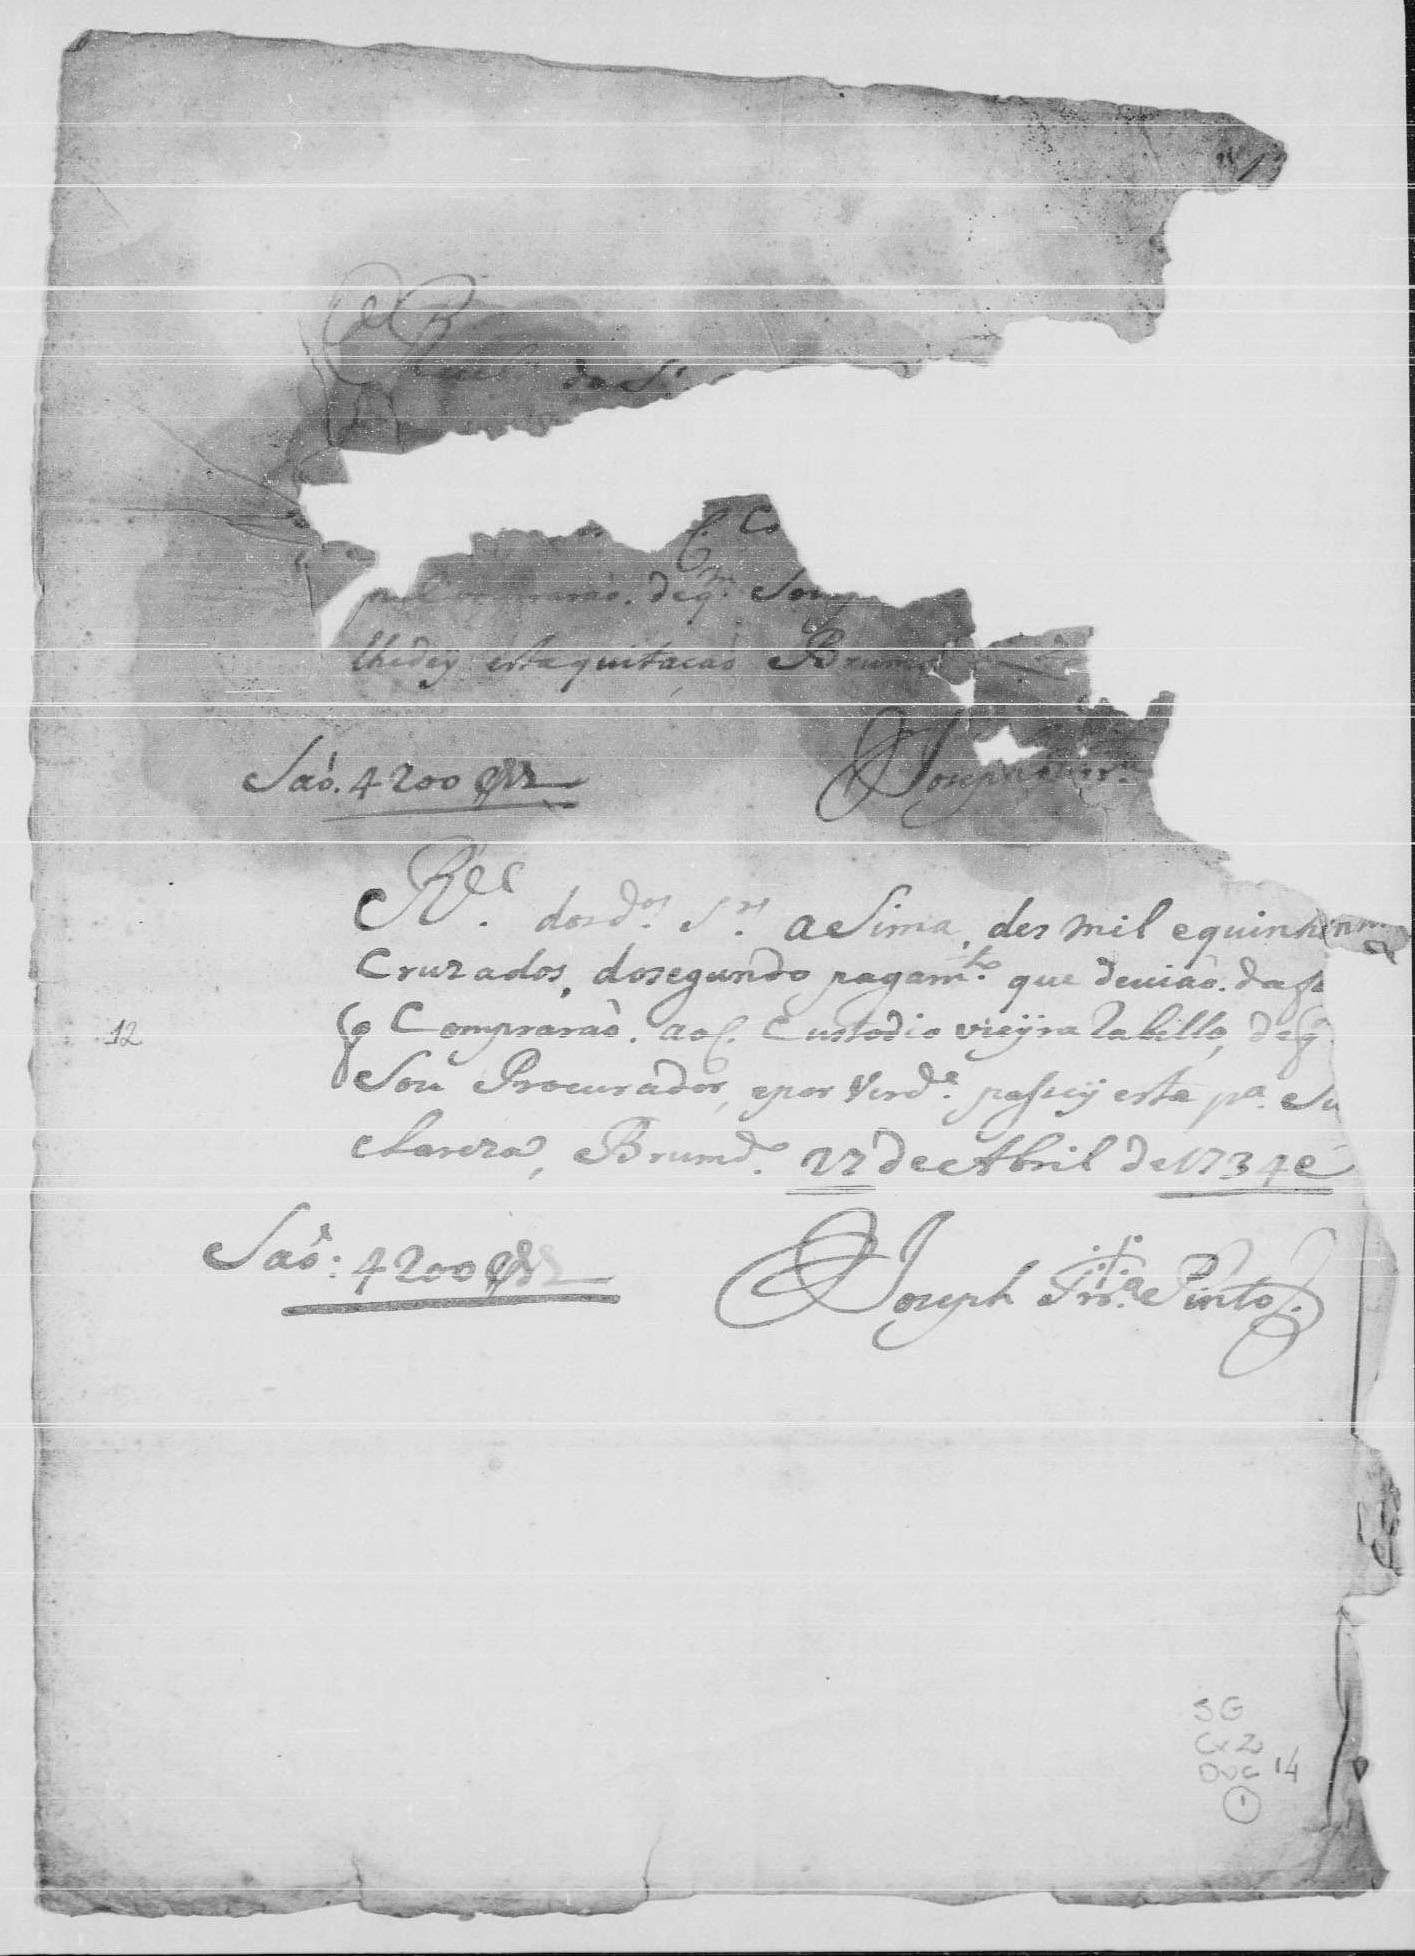 do S.r
C. Co
Compraraõ. de q.m Sou
lhe dey esta quitacaõ Brumd
Saõ. 4200
Joseph
Rec. dos d.os S.res a Sima, des mil e quinhen
Cruzados, do segundo pagam.to que deuiaõ. da f
q Compraraõ. ao C. Custodio vieyra Rabello, de q
Sou Procurador, e por Verd.e passey esta p.a Su
clareza, Brumd.o 27 de Abril de 1734 e
12
Saõ: 4200
Joseph Frr.a Pinto
SG
Cx 2
Doc 14
1